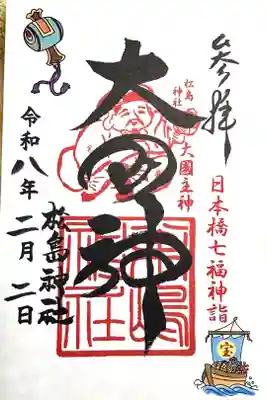 参拝
日本橋七福神詣
宝
松島
神社
大國主神
大国神
松島神社
令和八年二月二日
松島神社